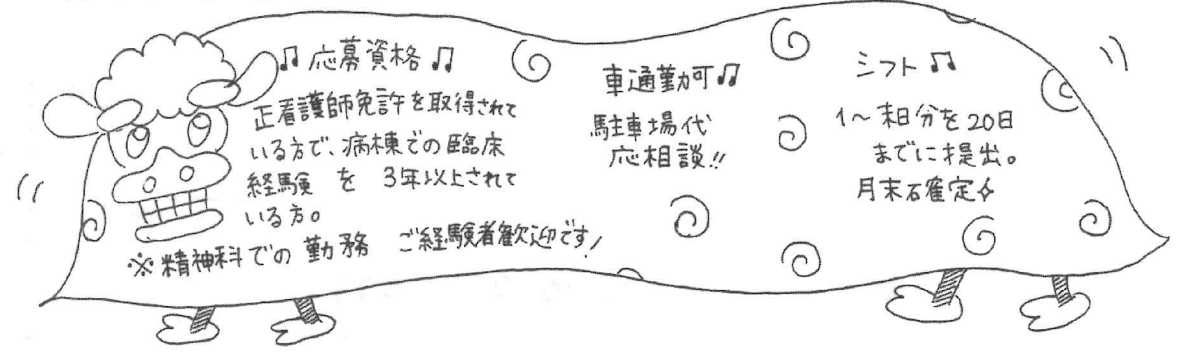 ♫応募資格♫
正看護師免許を取得されて
いる方で、病棟での臨床
経験を3年以上されて
いる方。
※精神科での勤務 ご経験者歓迎です!
車通勤可♫
駐車場代
応相談!!
シフト♫
1〜末日分を20日
までに提出。
月末確定✧